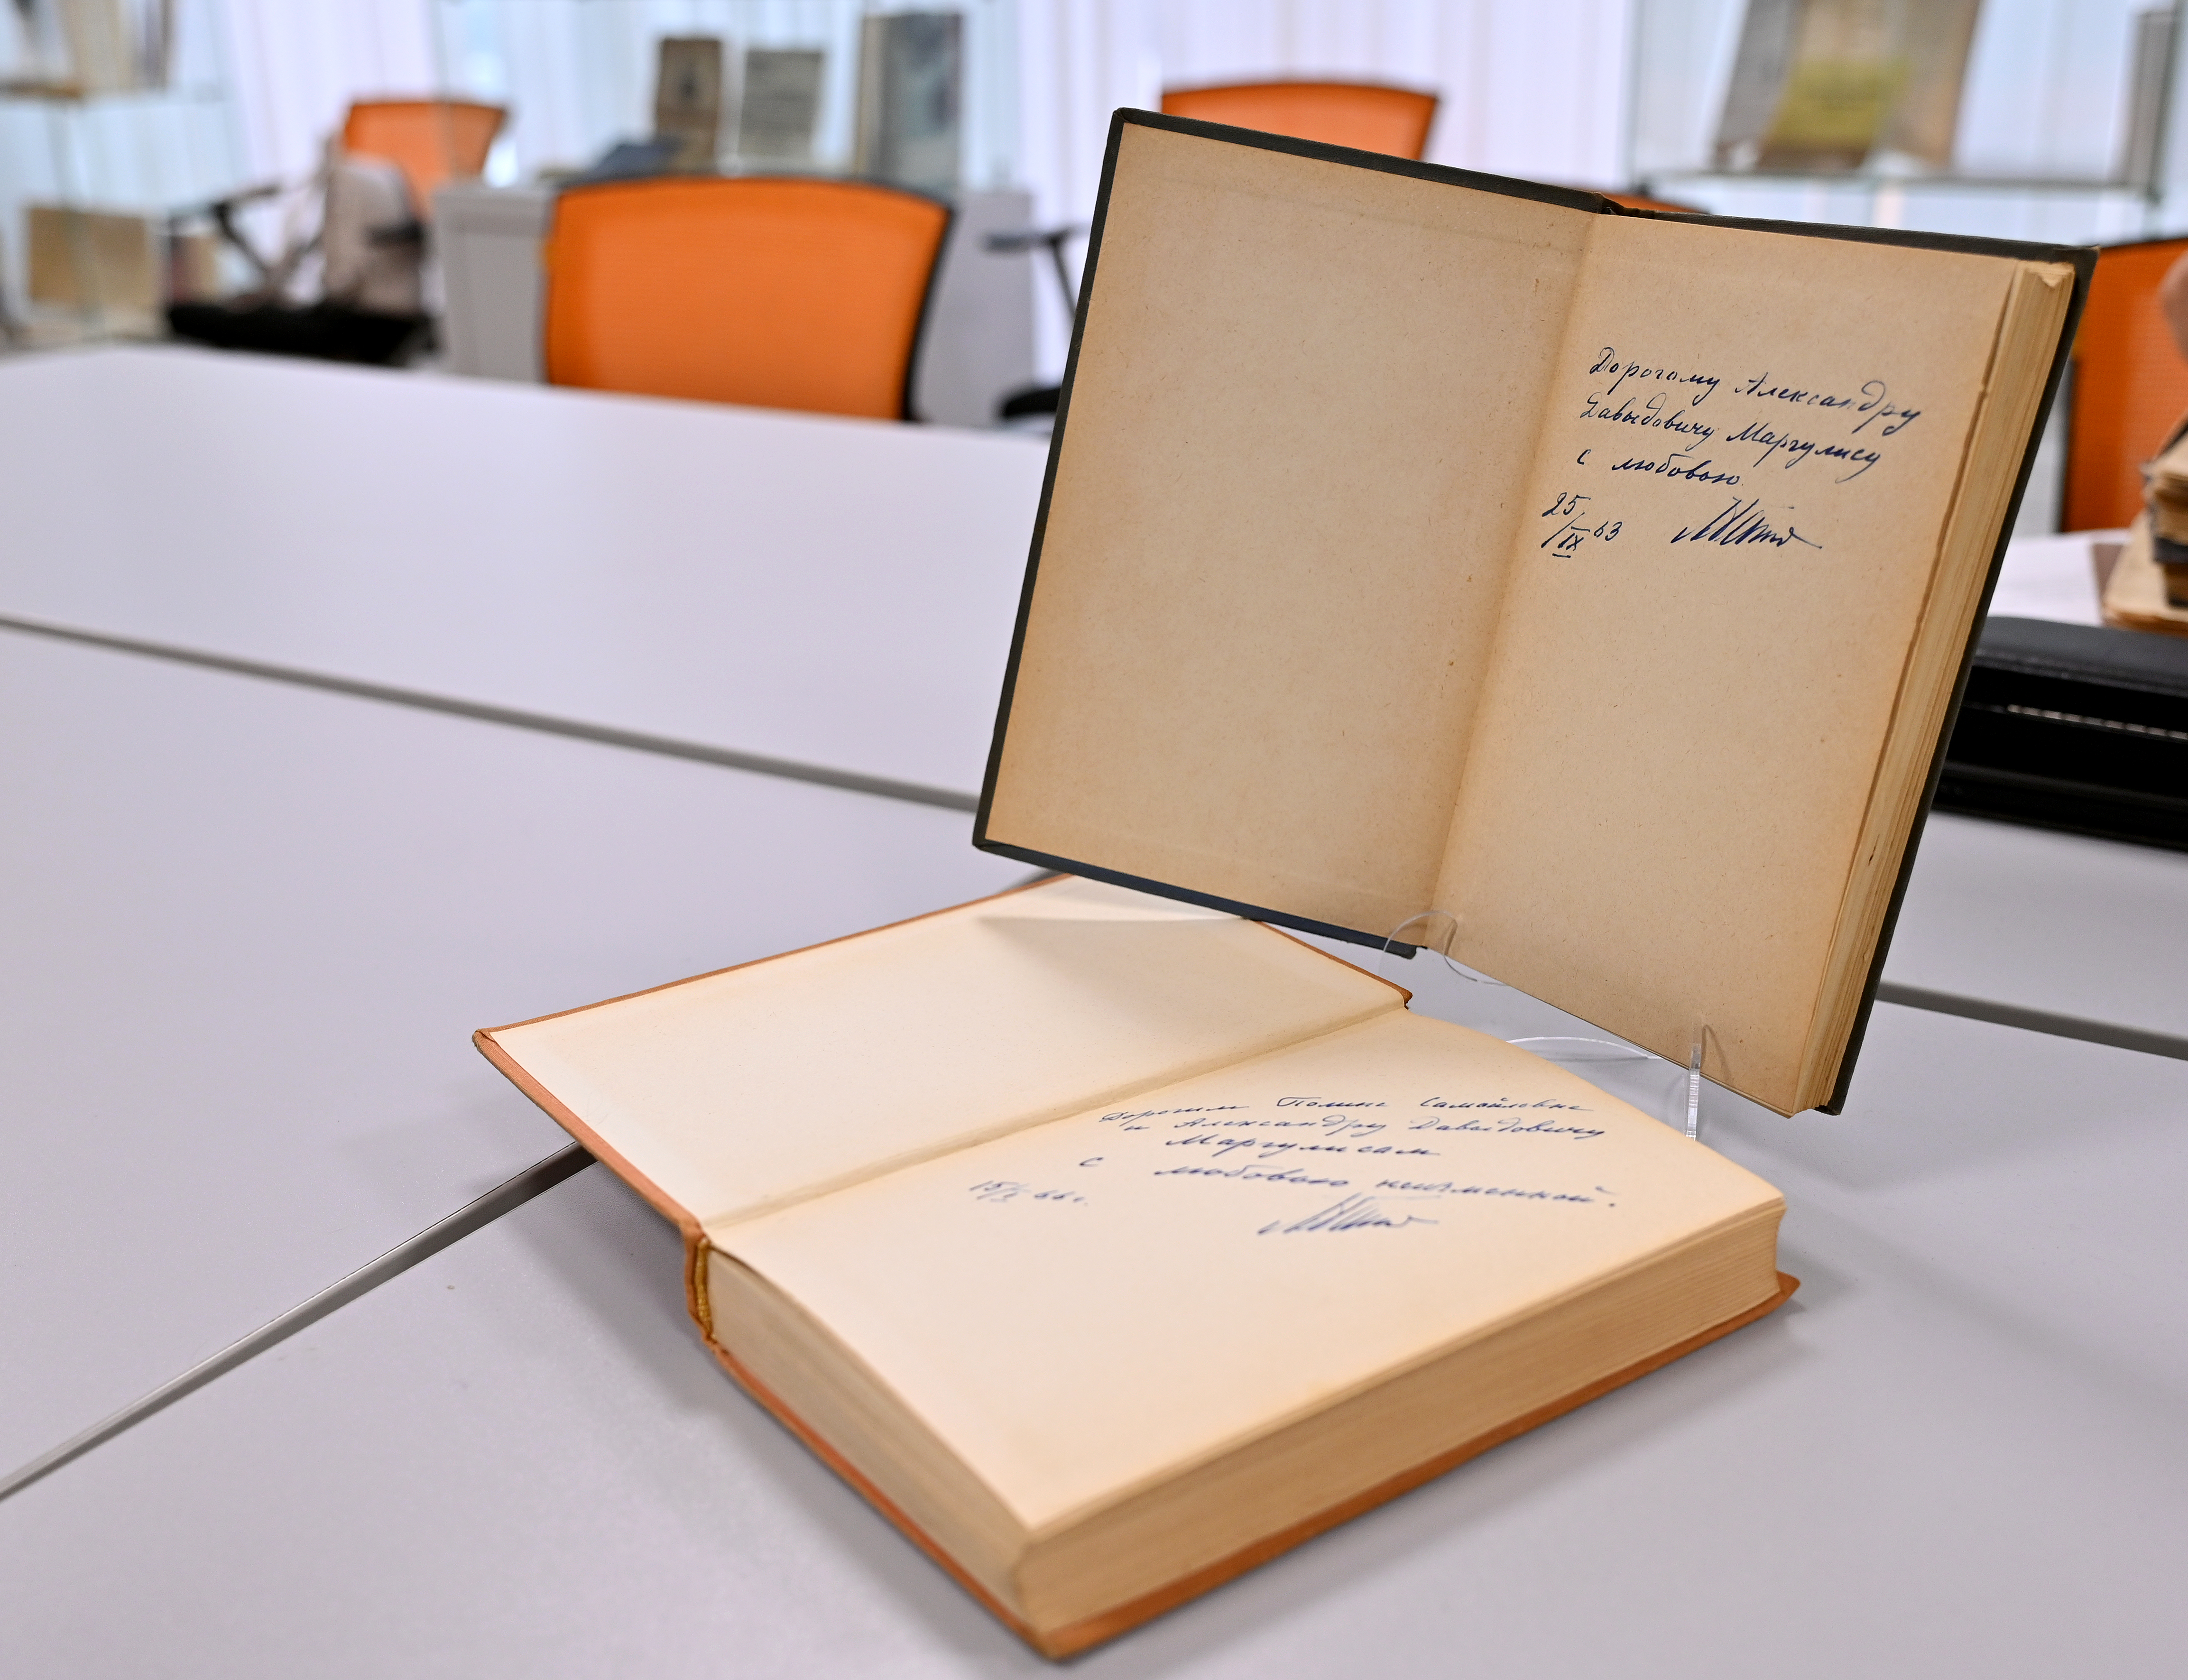 Дорогому Александру
Давыдовичу Маргулису
с любовью.
25/IX 63
Дорогим Полине Самойловне
и Александру Давыдовичу
Маргулисам
с любовью неизменной.
15/X 66 г.